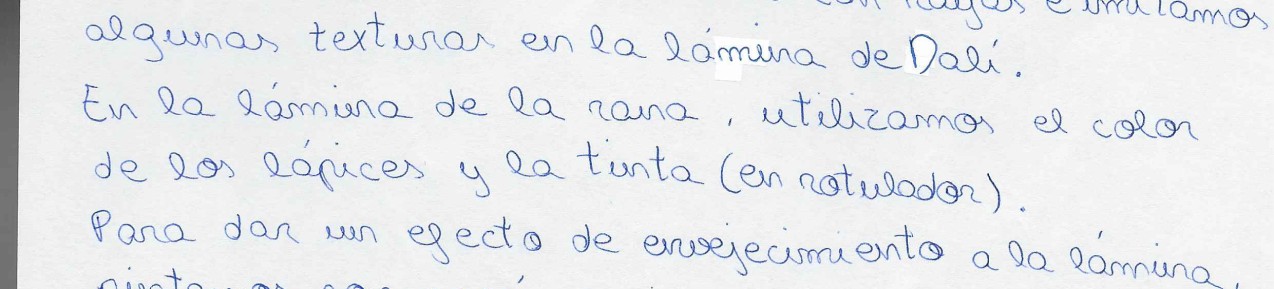 con rayas e imitamos
algunas texturas en la lámina de Dalí.
En la lámina de la rana, utilizamos el color
de los lápices y la tinta (en rotulador).
Para dar un efecto de envejecimiento a la lámina,